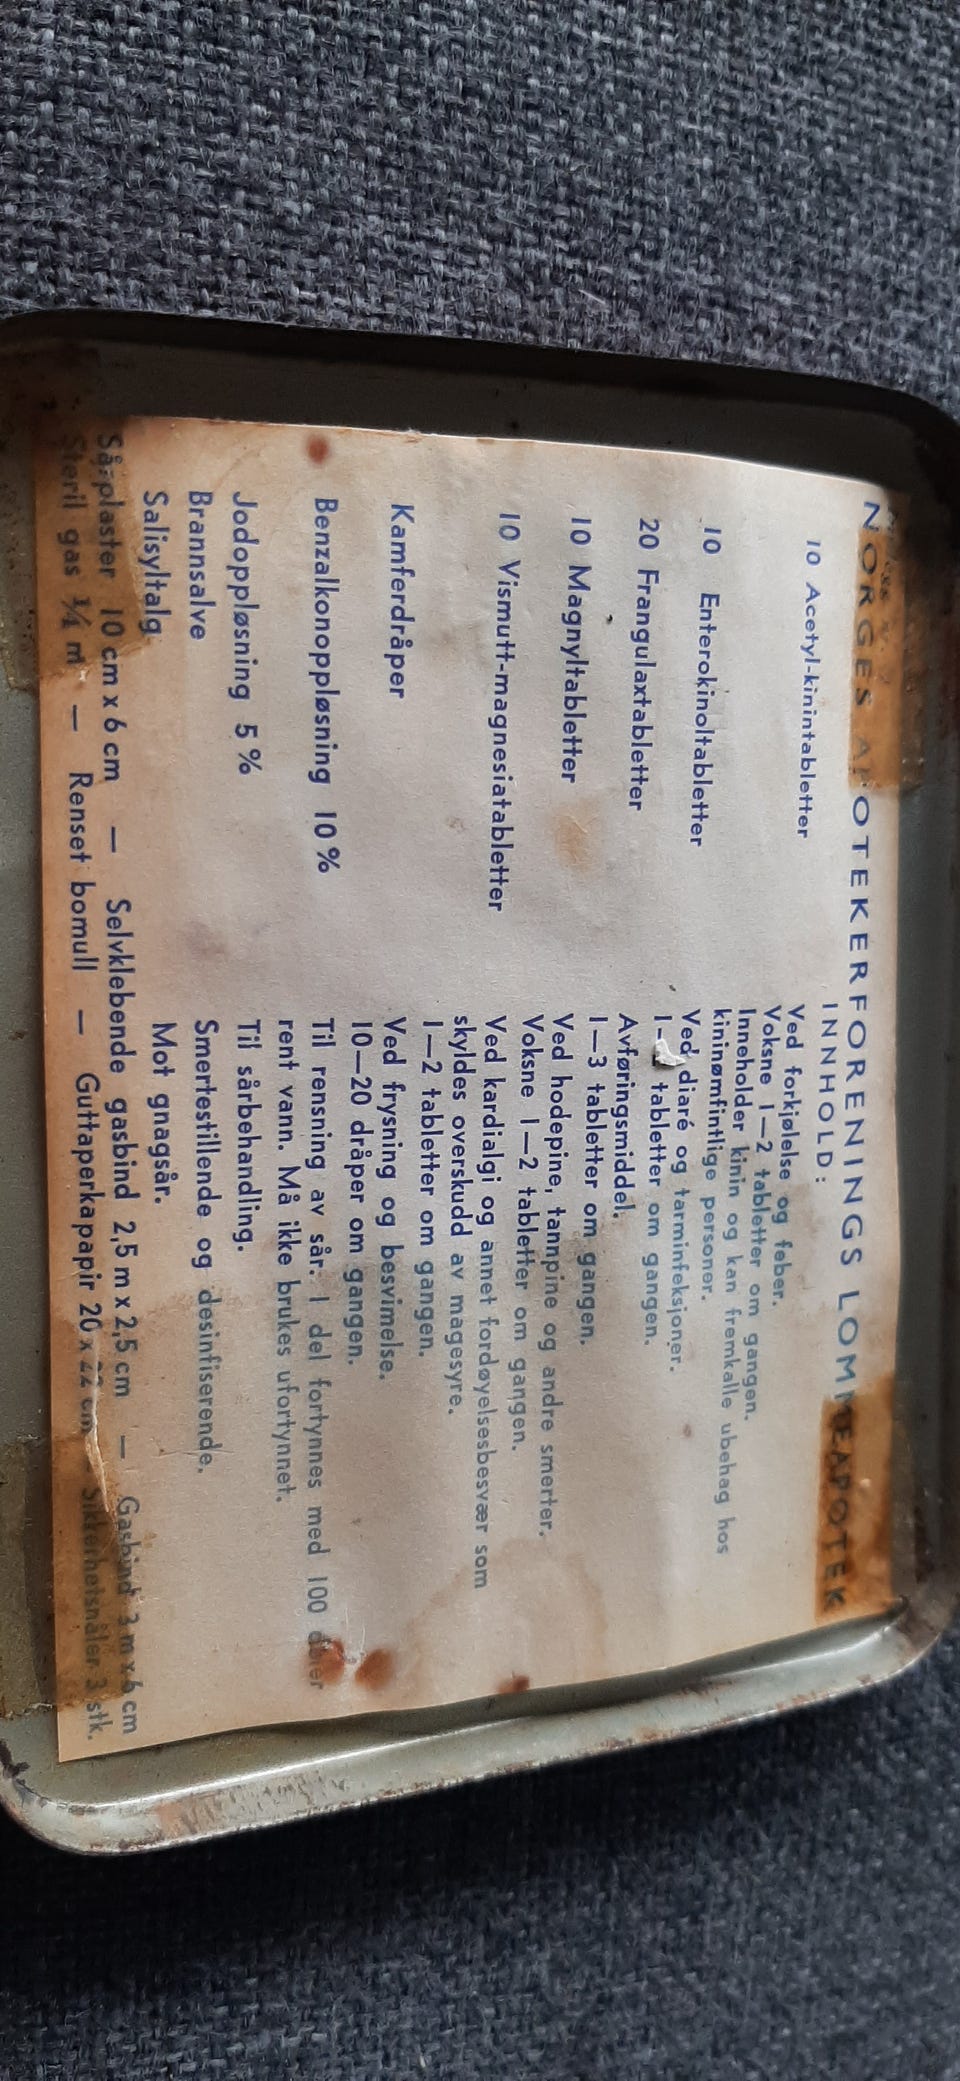 NORGES APOTEKERFORENINGS LOMMEAPOTEK
INNHOLD:
10 Acetyl-kinintabletter
Ved forkjølelse og feber.
Voksne 1—2 tabletter om gangen.
Inneholder kinin og kan fremkalle ubehag hos
kininømfintlige personer.
10 Enterokinoltabletter
Ved diaré og tarminfeksjoner.
1— tabletter om gangen.
20 Frangulaxtabletter
Avføringsmiddel.
1—3 tabletter om gangen.
10 Magnyltabletter
Ved hodepine, tannpine og andre smerter.
Voksne 1—2 tabletter om gangen.
10 Vismutt-magnesiatabletter
Ved kardialgi og annet fordøyelsesbesvær som
skyldes overskudd av magesyre.
1—2 tabletter om gangen.
Kamferdråper
Ved frysning og besvimelse.
10—20 dråper om gangen.
Benzalkonoppløsning 10 %
Til rensning av sår. 1 del fortynnes med 100 deler
rent vann. Må ikke brukes ufortynnet.
Jodoppløsning 5 %
Til sårbehandling.
Brannsalve
Smertestillende og desinfiserende.
Salisyltalg
Mot gnagsår.
Sårplaster 10 cm x 6 cm — Selvklebende gasbind 2,5 m x 2,5 cm — Gasbind 3 m x 6 cm
Steril gas ¼ m — Renset bomull — Guttaperkapapir 20 x 22 cm Sikkerhetsnåler 3 stk.